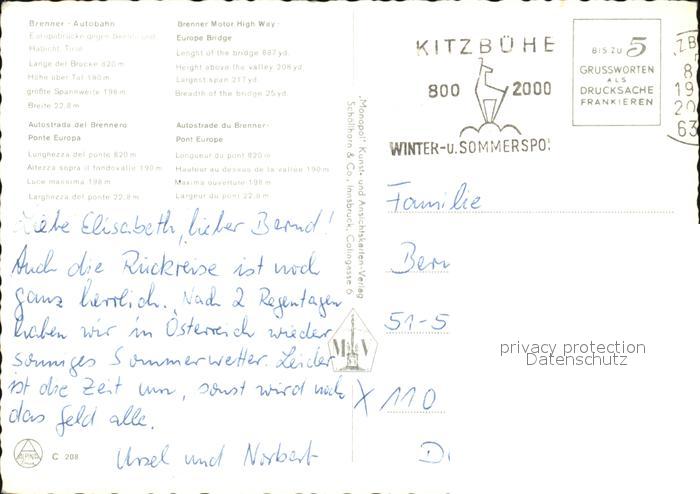 Brenner - Autobahn
Europabrücke gegen
Habicht, Tirol
Länge der Brücke 820 m
Höhe über Tal 190 m
größte Spannweite 198 m
Breite 22,8 m
Brenner Motor High Way -
Europe Bridge
Lenght of the bridge 897 yd.
Height above the valley 208 yd.
Largest span 217 yd.
Breadth of the bridge 25 yd.
Autostrada del Brennero
Ponte Europa
Lunghezza del ponte 820 m
Altezza sopra il fondovalle 190 m
Luce massima 198 m
Larghezza del ponte 22,8 m
Autostrade du Brenner-
Pont Europe
Longueur du pont 820 m
Hauteur au dessus de la vallée 190 m
Maxima ouverture 198 m
Largeur du pont 22,8 m
Liebe Elisabeth, lieber Bernd!
Auch die Rückreise ist noch
ganz herrlich. Nach 2 Regentagen
haben wir in Österreich wieder
sonniges Sommerwetter. Leider
ist die Zeit um, sonst wird noch
das Geld alle.
Ursel und Norbert
C 208
„Monopol" Kunst- und Ansichtskarten-Verlag
Schöllhorn & Co., Innsbruck, Colingasse 6
M V
KITZBÜHE
800 2000
WINTER-u.SOMMERSPO
BIS ZU 5
GRUSSWORTEN
ALS
DRUCKSACHE
FRANKIEREN
ZB
8
19
20
63
Familie
Bern
51-5
X 110
D
privacy protection
Datenschutz